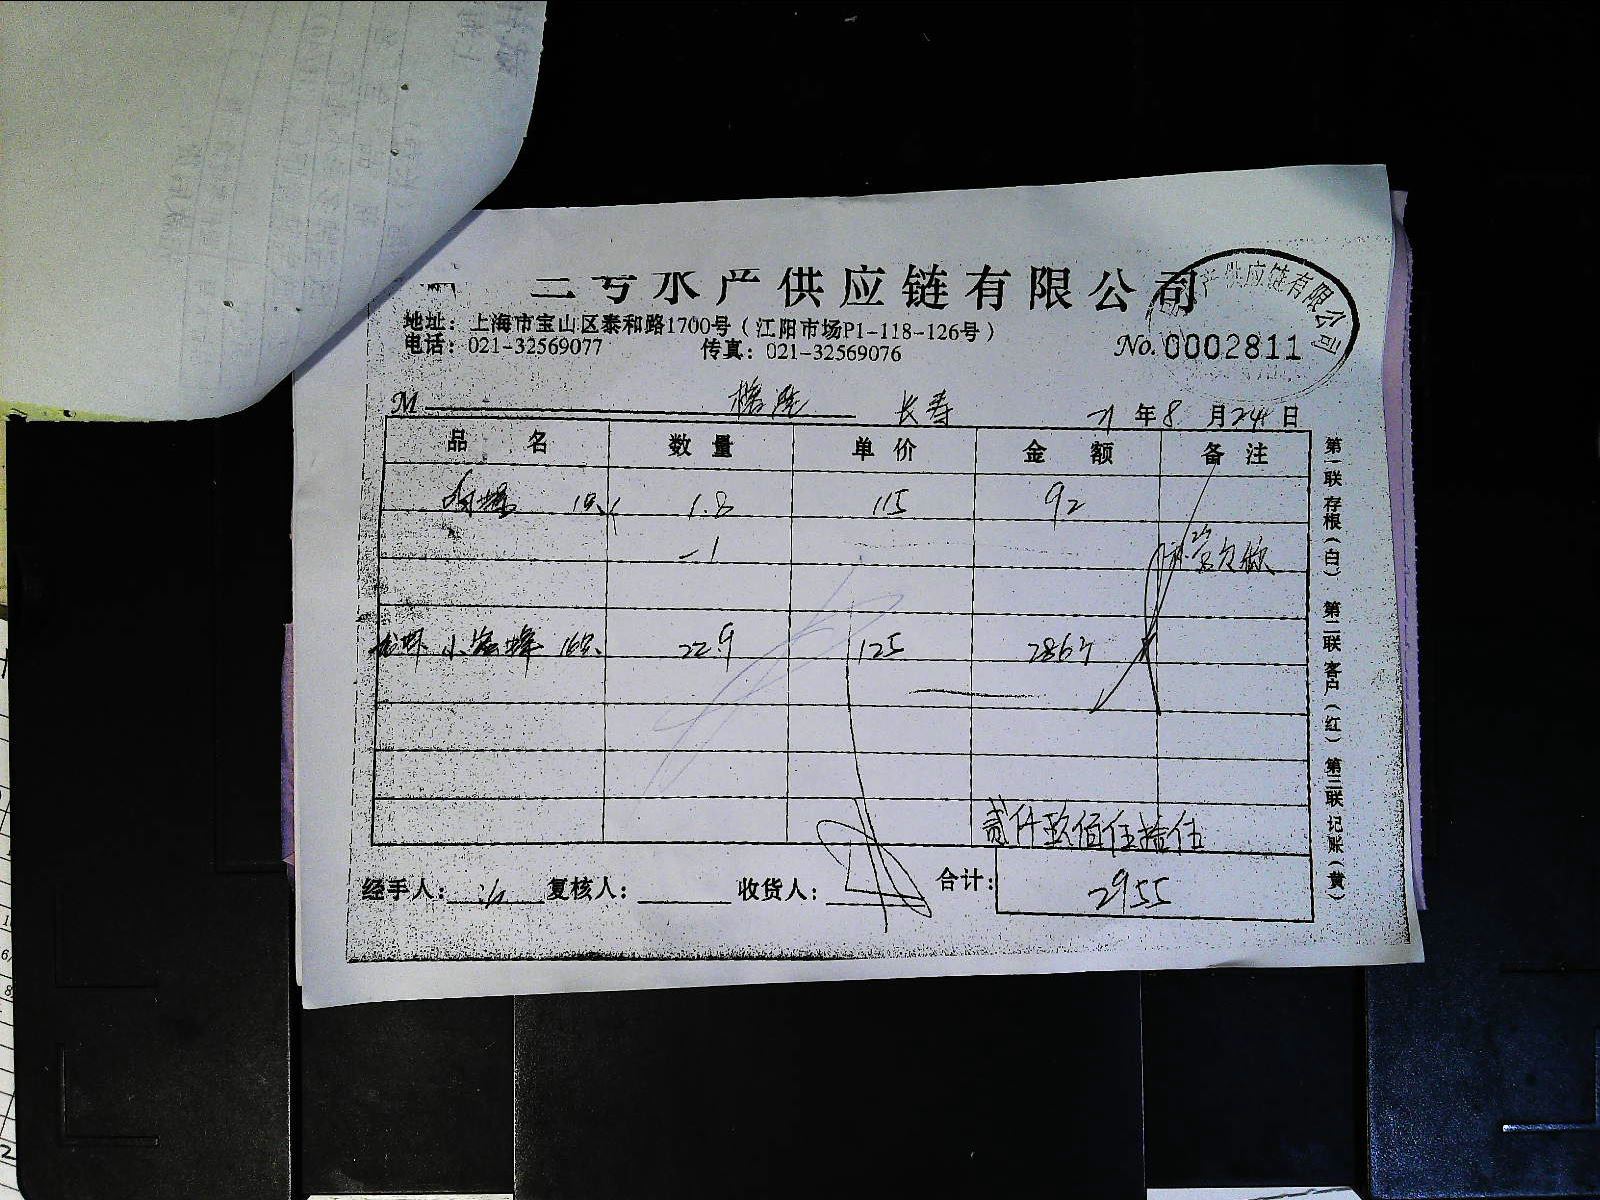 三号水产供应链有限公司
产供应链有限公司
地址：上海市宝山区泰和路1700号（江阳市场P1-118-126号）
电话：021-32569077 传真：021-32569076
No. 0002811
M 长寿 21年8月24日
品名 数量 单价 金额 备注
1.8 115 92
-1
小 22.9 125 2863
贰仟玖佰伍拾伍
经手人： 复核人： 收货人： 合计： 2955
第一联存根（白） 第二联客户（红） 第三联记账（黄）